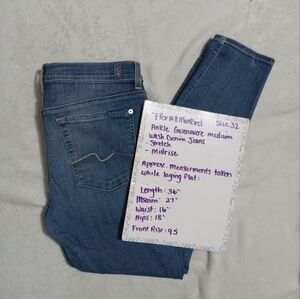 7 For All Mankind Size 32
Ankle Gwenevere medium
wash Denim Jeans
- Stretch
- Midrise
Approx. measurments taken
while laying flat:
Length: 36"
Inseam: 27"
Waist: 16"
Hips: 18"
Front Rise: 9.5